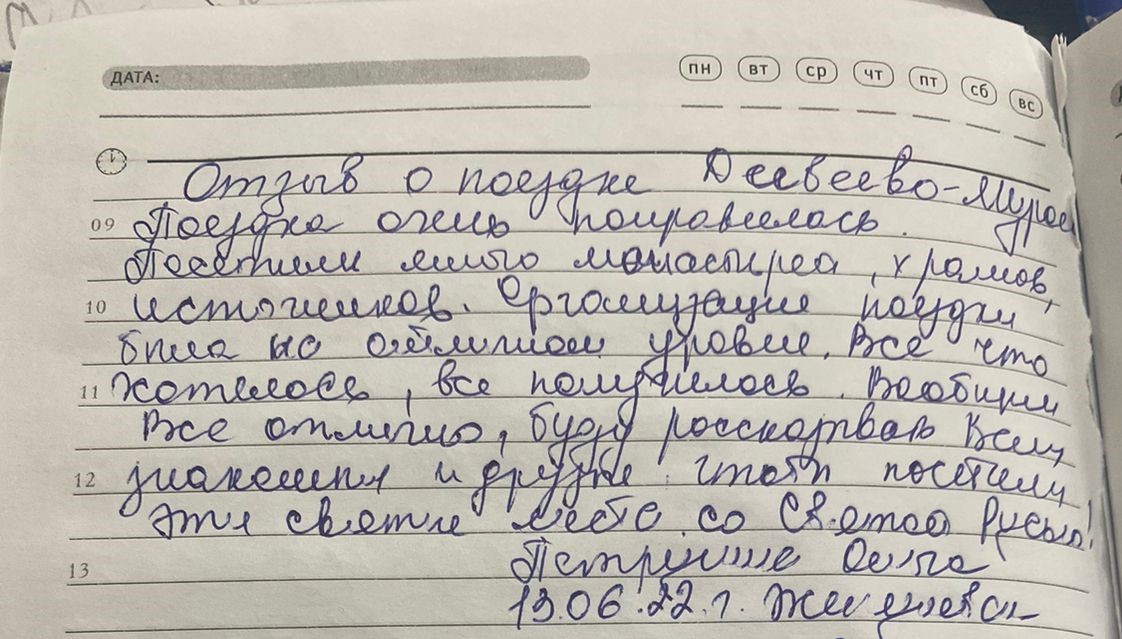 ДАТА: ПН ВТ СР ЧТ ПТ СБ ВС
Отзыв о поездке Дивеево-Муром
09 Поездка очень понравилась.
Посетили много монастырей, храмов,
10 источников. Организация поездки
была на отличном уровне. Все что
11 хотелось, все получилось. Вообщем
Все отлично, буду рассказывать Всем
12 знакомым и друзьям чтобы посетили
эти святые места со Святой Русью!
13 Петрунина Ольга
13.06.22.г.